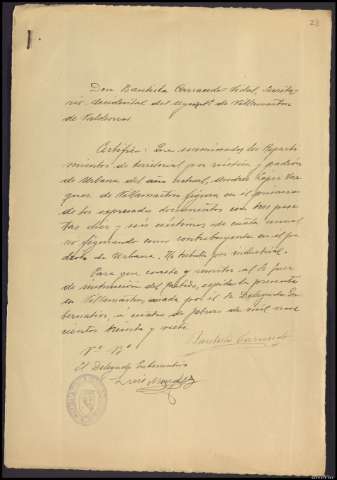 23
Don Bautista Carnando Vidal, Secreta-
rio Accidental del Ayuntº de Villamartin
de Valdeorras
Certifico: Que examinados los Reparti-
mientos de territorial por rústica y padrón
de Urbana del año actual, Andrés López Váz-
quez de Villamartin figura en el primero
de los expresados documentos con tres pese-
tas diez y seis céntimos de cuota anual
no figurando como contribuyente en el pa-
drón de Urbana. Ni tributa por industrial.
Para que conste y remitir al Sr Juez
de instrucción del Partido, expido la presente
en Villamartin, visada por el Sr Delegado Gu-
bernativo, a cuatro de febrero de mil nove-
cientos treinta y siete
Vº Bº
Bautista Carnando
El Delegado Gubernativo
Luis